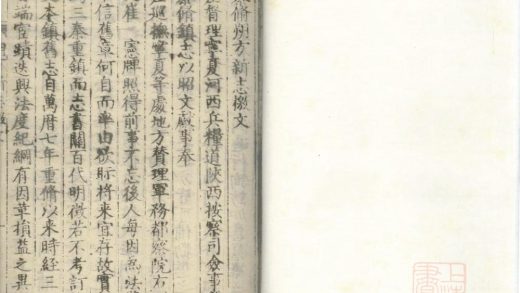 脩朔方新志檄文
督理寧夏河西兵糧道陝西按察司僉事
脩鎮志以昭文献事奉
巡撫寧夏等處地方贊理軍務都察院右
崔 憲牌照得前事不忘後人每因無法
信舊章何自而率由欲眎將来宜存故實
三秦重鎮而志書關百代明徵若不考訂
查鎮舊志自萬曆七年重脩以来時經三
端宦蹟迭興法度紀綱有因革損益之異